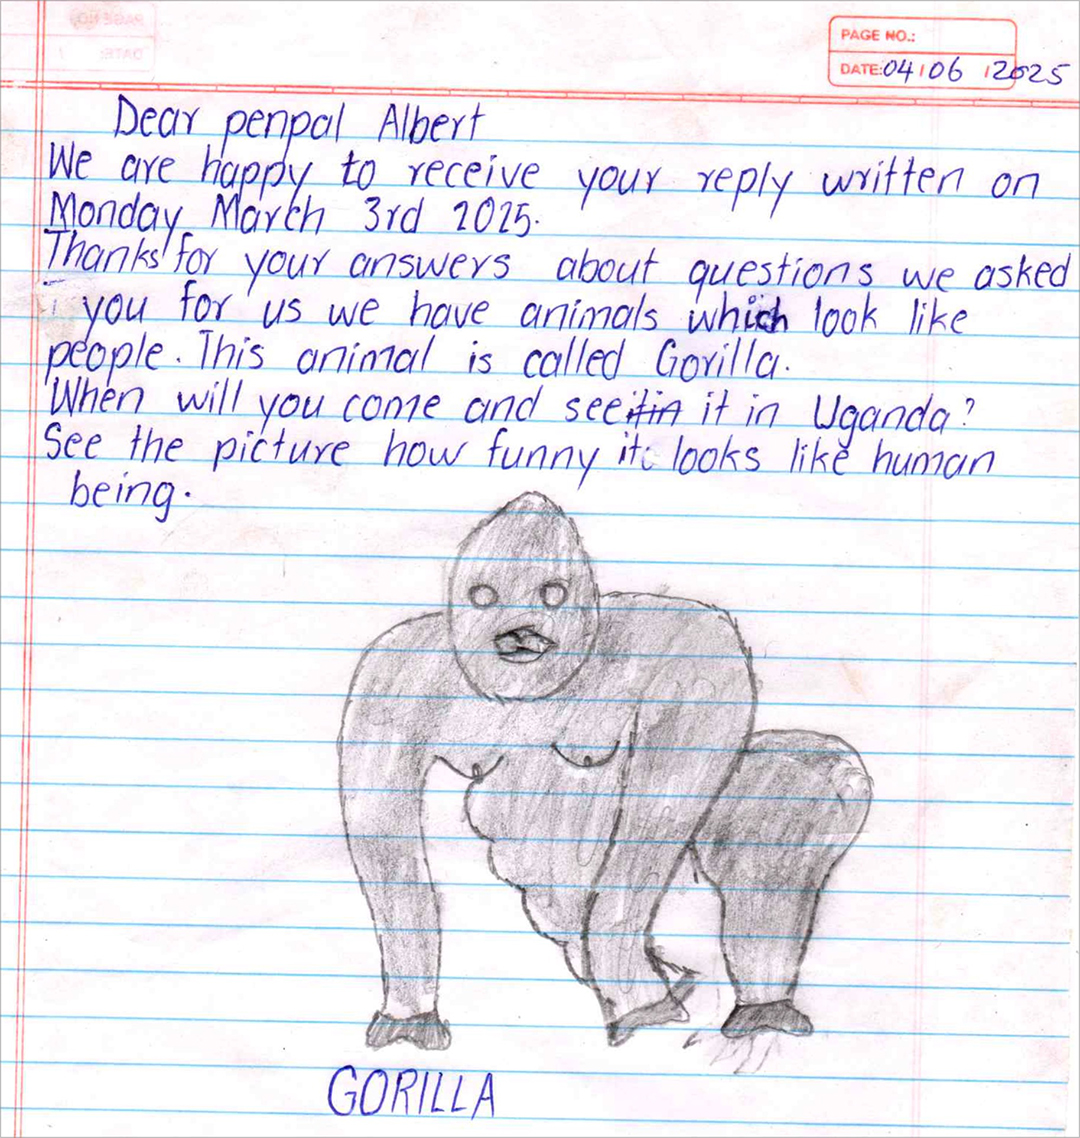 PAGE NO.:
DATE: 04/06/2025
Dear penpal Albert
We are happy to receive your reply written on
Monday March 3rd 2025.
Thanks for your answers about questions we asked
you for us we have animals which look like
people. This animal is called Gorilla.
When will you come and see it in it in Uganda?
See the picture how funny it looks like human
being.
GORILLA